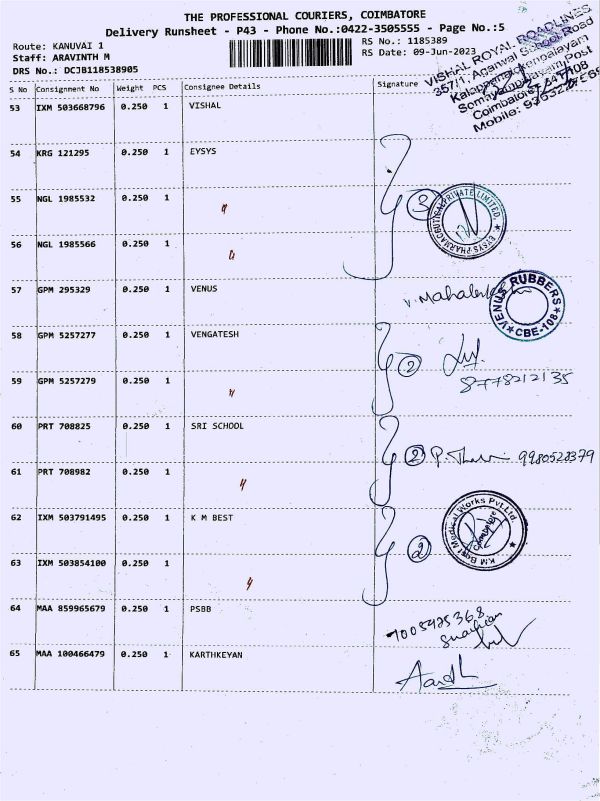 THE PROFESSIONAL COURIERS, COIMBATORE
Delivery Runsheet - P43 - Phone No.:0422-3505555 - Page No.:5
Route: KANUVAI 1
RS No.: 1185389
Staff: ARAVINTH M
RS Date: 09-Jun-2023
DRS No.: DCJB118538905
VISHAL ROYAL ROADLINES
357/1, Agarwal School Road
Coimbatore
Mobile:
S No Consignment No Weight PCS Consignee Details Signature
53 IXM 503668796 0.250 1 VISHAL
54 KRG 121295 0.250 1 EYSYS
55 NGL 1985532 0.250 1 "
3
EYSYS PHARMACEUTICAL PRIVATE LIMITED
56 NGL 1985566 0.250 1 "
57 GPM 295329 0.250 1 VENUS
VENUS RUBBERS CBE-108
58 GPM 5257277 0.250 1 VENGATESH
2
8778212135
59 GPM 5257279 0.250 1 "
60 PRT 708825 0.250 1 SRI SCHOOL
2 9980528379
61 PRT 708982 0.250 1 "
62 IXM 503791495 0.250 1 K M BEST
2
KM Best Medical Works Pvt.Ltd.
63 IXM 503854100 0.250 1 "
64 MAA 859965679 0.250 1 PSBB
65 MAA 100466479 0.250 1 KARTHKEYAN